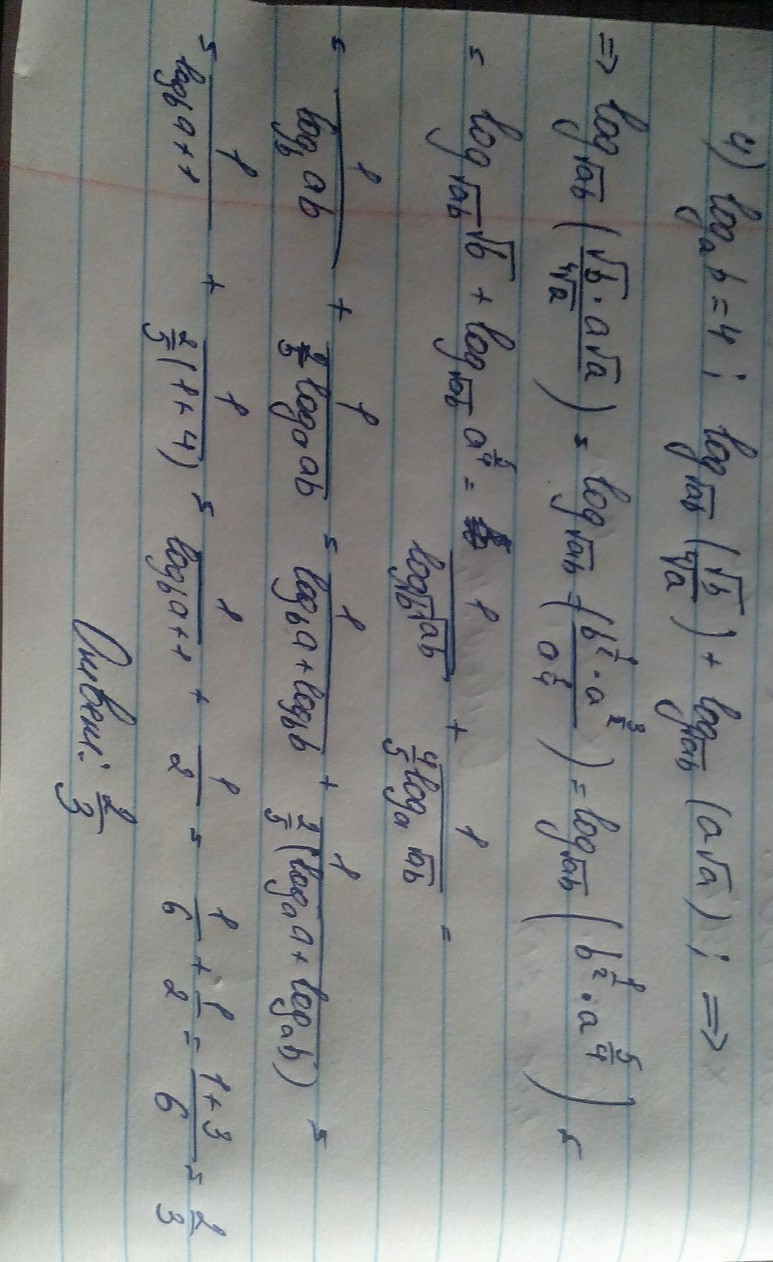 4) log_a b = 4 ; log_√ab (√b / ⁴√a) + log_√ab (a√a) ; =>
=> log_√ab (√b · a√a / ⁴√a) = log_√ab = (b^(1/2) · a^(3/2) / a^(1/4)) = log_√ab (b^(1/2) · a^(5/4)) =
= log_√ab √b + log_√ab a^(5/4) = 1 / log_√b √ab + 1 / (4/5 log_a √ab) =
= 1 / log_b ab + 1 / (2/5 log_a ab) = 1 / (log_b a + log_b b) + 1 / (2/5 (log_a a + log_a b)) =
= 1 / (log_b a + 1) + 1 / (2/5 (1 + 4)) = 1 / (log_b a + 1) + 1/2 = 1/6 + 1/2 = (1 + 3) / 6 = 2/3
Ответ: 2/3